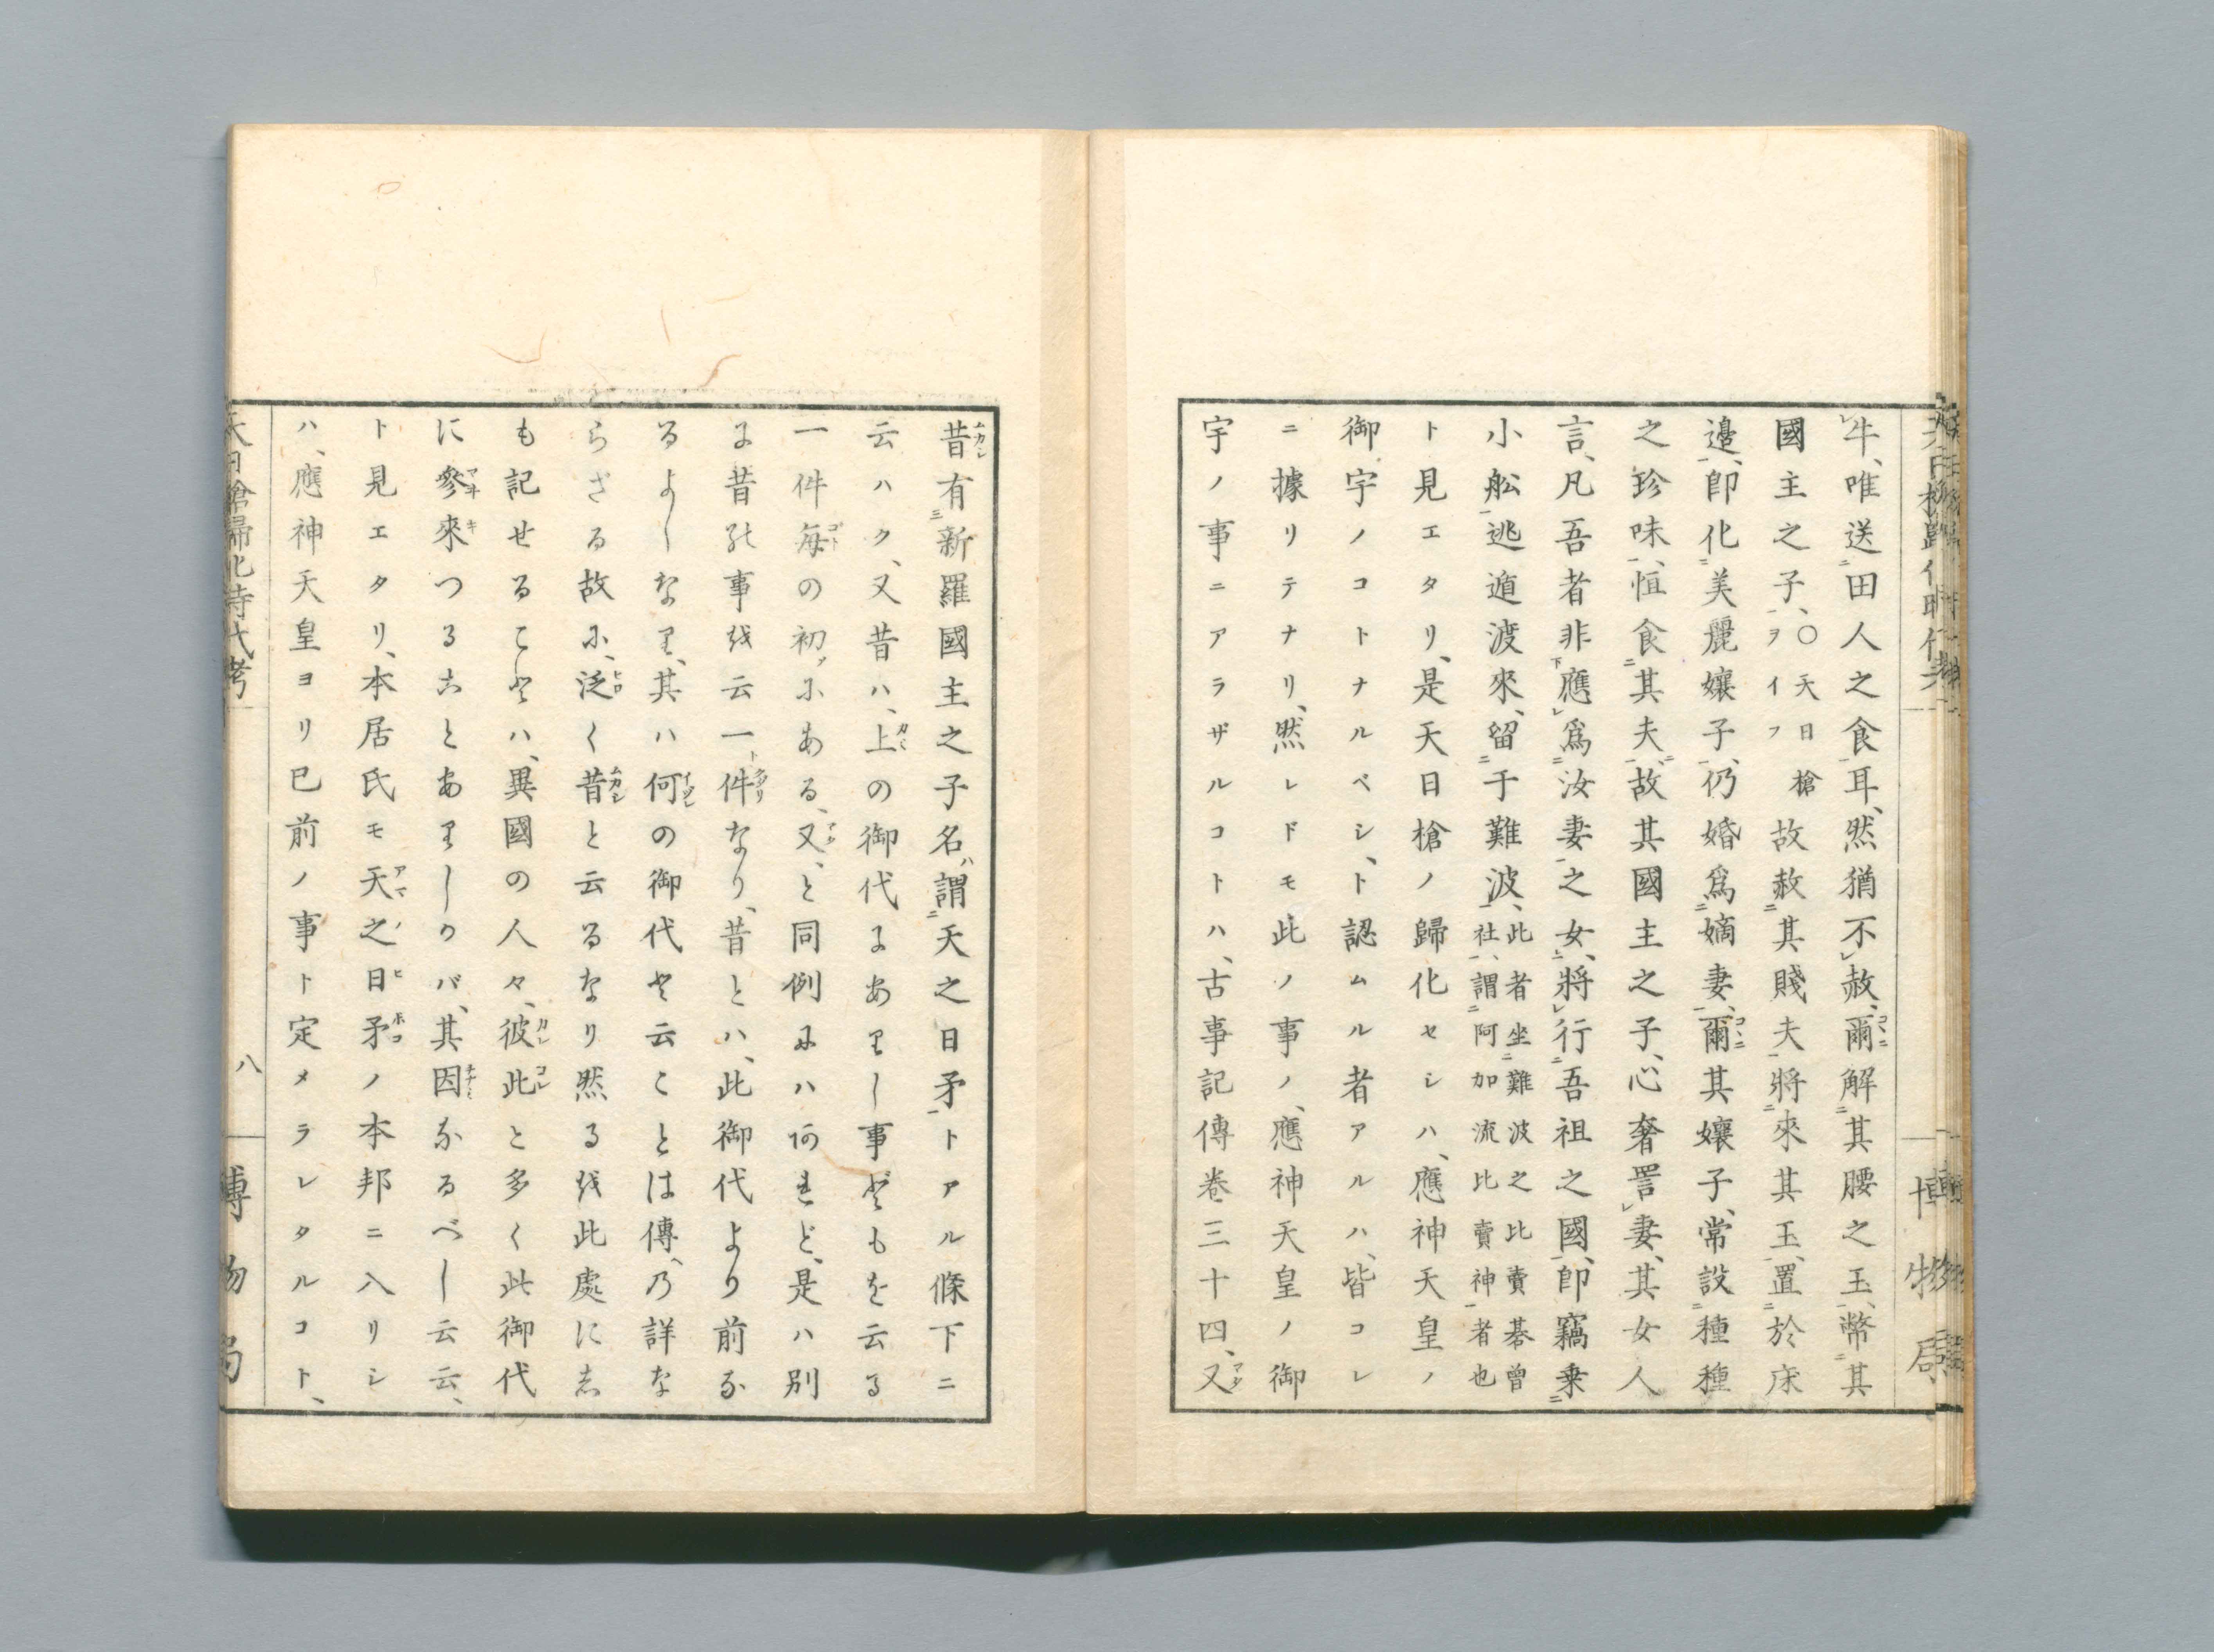 牛、唯送田人之食耳、然猶不赦、爾解其腰之玉、幣其
國主之子、〇天日槍ヲイフ故赦其賤夫將來其玉、置於床
邊、即化美麗孃子、仍婚爲嫡妻、爾其孃子、常設種種
之珍味、恒食其夫、故其國主之子、心奢詈妻、其女人
言、凡吾者非應爲汝妻之女、將行吾祖之國、即竊乗
小舩逃遁渡來、留于難波、此者坐難波之比賣碁曾社、謂阿加流比賣神者也
ト見エタリ、是天日槍ノ歸化セシハ、應神天皇ノ
御宇ノコトナルベシ、ト認ムル者アルハ、皆コレ
ニ據リテナリ、然レドモ此ノ事ノ、應神天皇ノ御
宇ノ事ニアラザルコトハ、古事記傳卷三十四、又
昔有新羅國主之子名謂天之日矛トアル條下ニ
云ハク、又昔ハ、上の御代にありし事どもを云る
一件毎の初にある、又、と同例にハあれど、是ハ別
に昔の事を云一件なり、昔とハ、此御代より前な
るよしなり、其ハ何の御代と云ことは傳、乃詳な
らざる故に、泛く昔と云るなり然るを此處にし
も記せることハ、異國の人々、彼此と多く此御代
に參來つることありしかバ、其因なるべし云云、
ト見エタリ、本居氏モ天之日矛ノ本邦ニ入リシ
ハ、應神天皇ヨリ已前ノ事ト定メラレタルコト、
天日槍歸化時代考
八
博物局